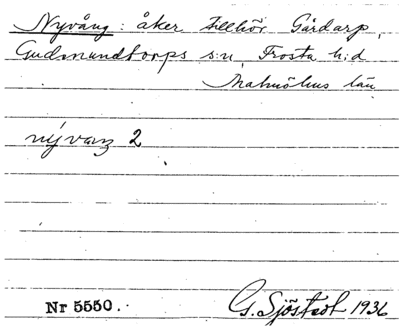 Nyvång: åker tillhör Gårdarp,
Gudmundtorps s:n, Frosta h:d
Malmöhus län
nývaŋ 2
Nr 5550.
G. Sjöstedt 1936